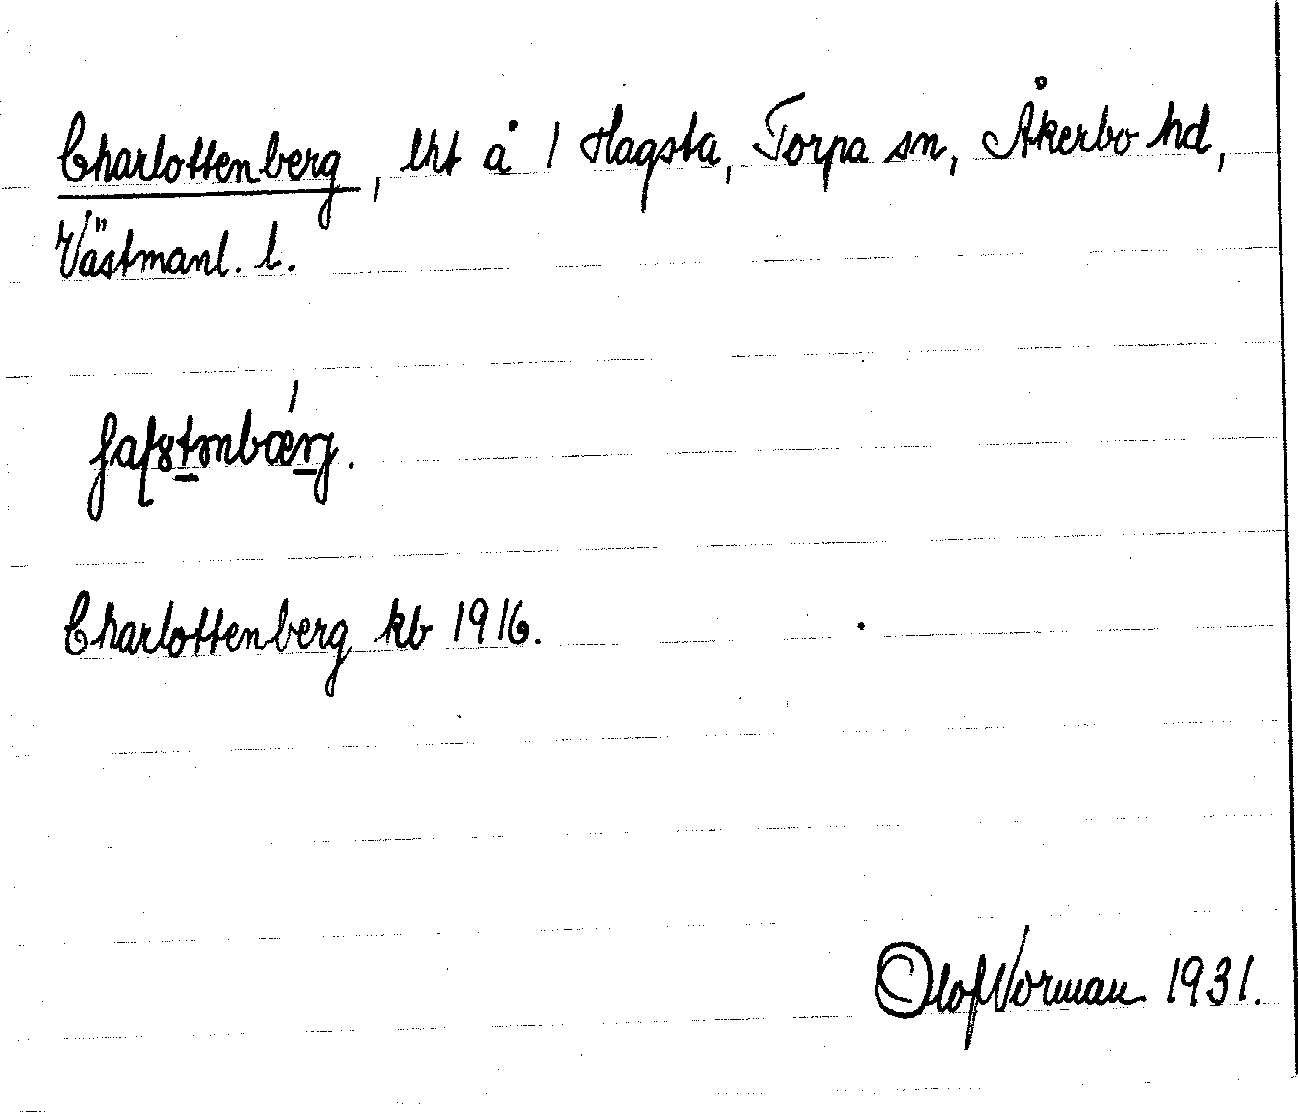 Charlottenberg, lht å 1 Hagsta, Torpa sn, Åkerbo hd,
Västmanl. l.
Charlottenberg kb 1916.
Olof Norman 1931.